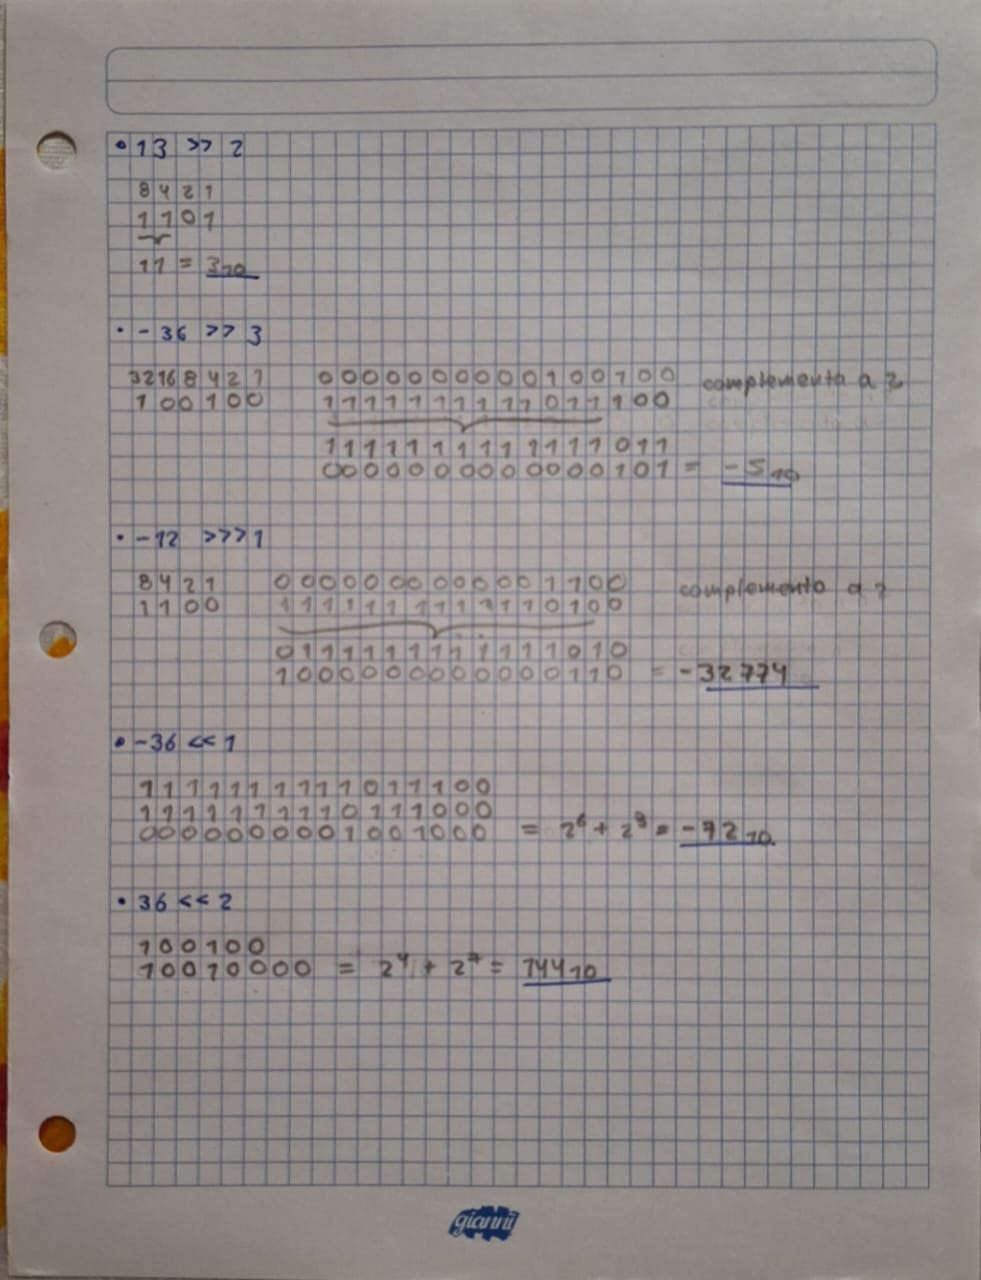 • 13 >> 2
8 4 2 1
1 1 0 1
11 = 3₁₀
• -36 >> 3
32 16 8 4 2 1 0000000000100100 complementa a 2
1 0 0 1 0 0 1111111111011100
1111111111111011
0000000000000101 = -5₁₀
• -12 >>> 1
8 4 2 1 0000000000001100 complemento a 2
1 1 0 0 1111111111110100
0111111111111010
1000000000000110 = -32774
• -36 << 1
1111111111011100
1111111110111000
0000000001001000 = 2⁶ + 2³ = -72₁₀
• 36 << 2
100100
10010000 = 2⁴ + 2⁷ = 144₁₀
gianni